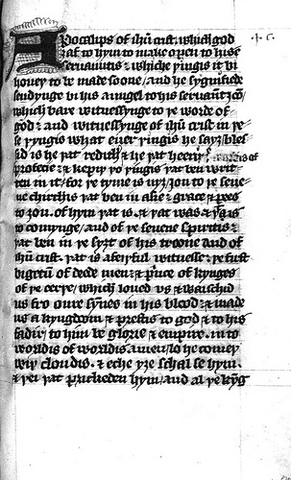 Apocalips of ihū crist. which god
ȝaf to hym to make open to hise
seruauntis: whiche þingis it bi
houeþ to be made soone/ and he sygnifiede
sendynge bi his aungel to his seruaunt
which bare witnessynge to þe word of
god: and witnessynge of ihū crist in þe
se þyngis what euer þingis he say/ bles
sid is he þat rediþ: & he þat heeriþ
profecie: & kepiþ þo þingis þat ben writ
ten in it/ for þe tyme is
ne chirchis þat ben in asie: grace & pees
to ȝou. of hym þat is. & þat was & þat is
to comynge/ and of þe seuene spiritis:
þat ben in þe syȝt of his troone and of
ihū crist. þat is a feiþful witnesse: þe first
bigetun of dede men: & prince of kynges
of þe eerþe, which loued vs & waischid
us fro oure synes in his blood: & made
us a kyngdom & prestis to god & to his
fadir/ to him be glorie & empire. in to
worldis of worldis. amen/ lo he comeþ
wiþ cloudis. & eche yȝe schal se hym.
& þei þat prickeden hym/ and al þe kyn